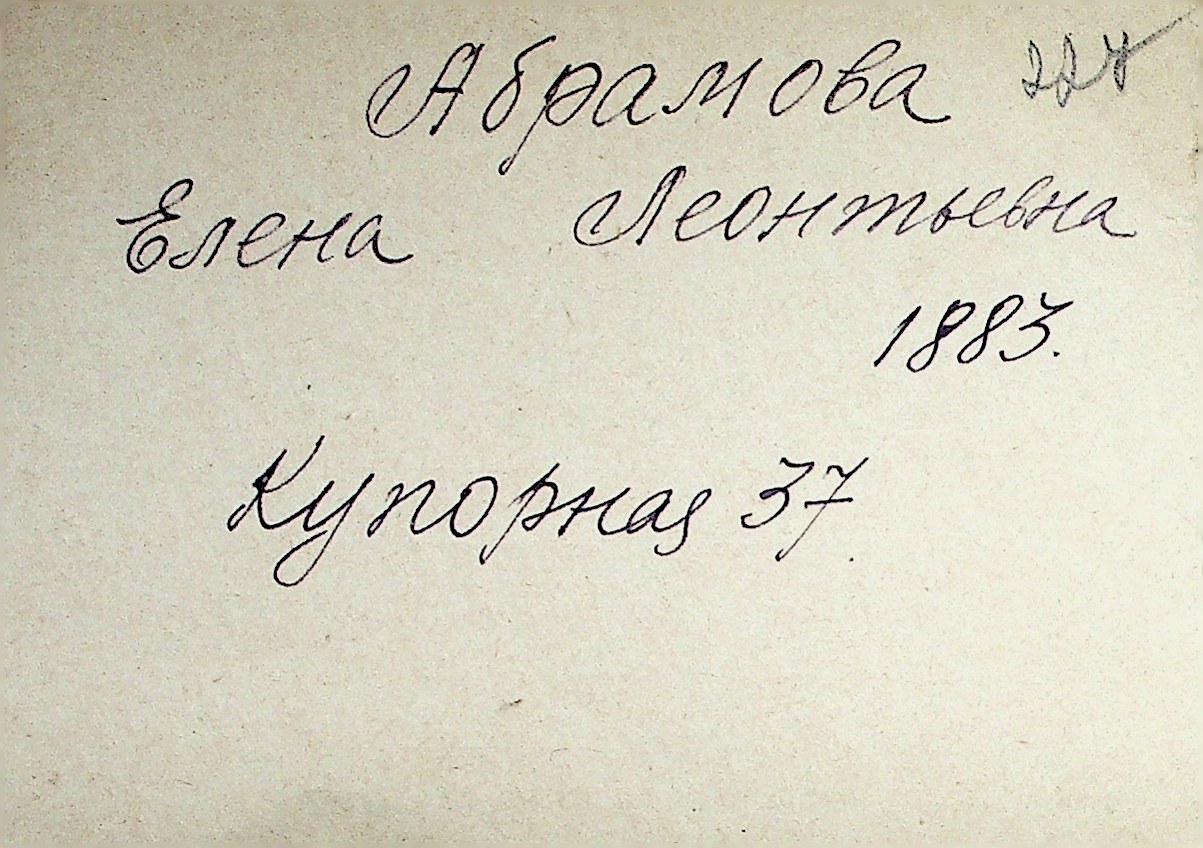 Абрамова
Елена Леонтьевна
1883.
Купорная 37